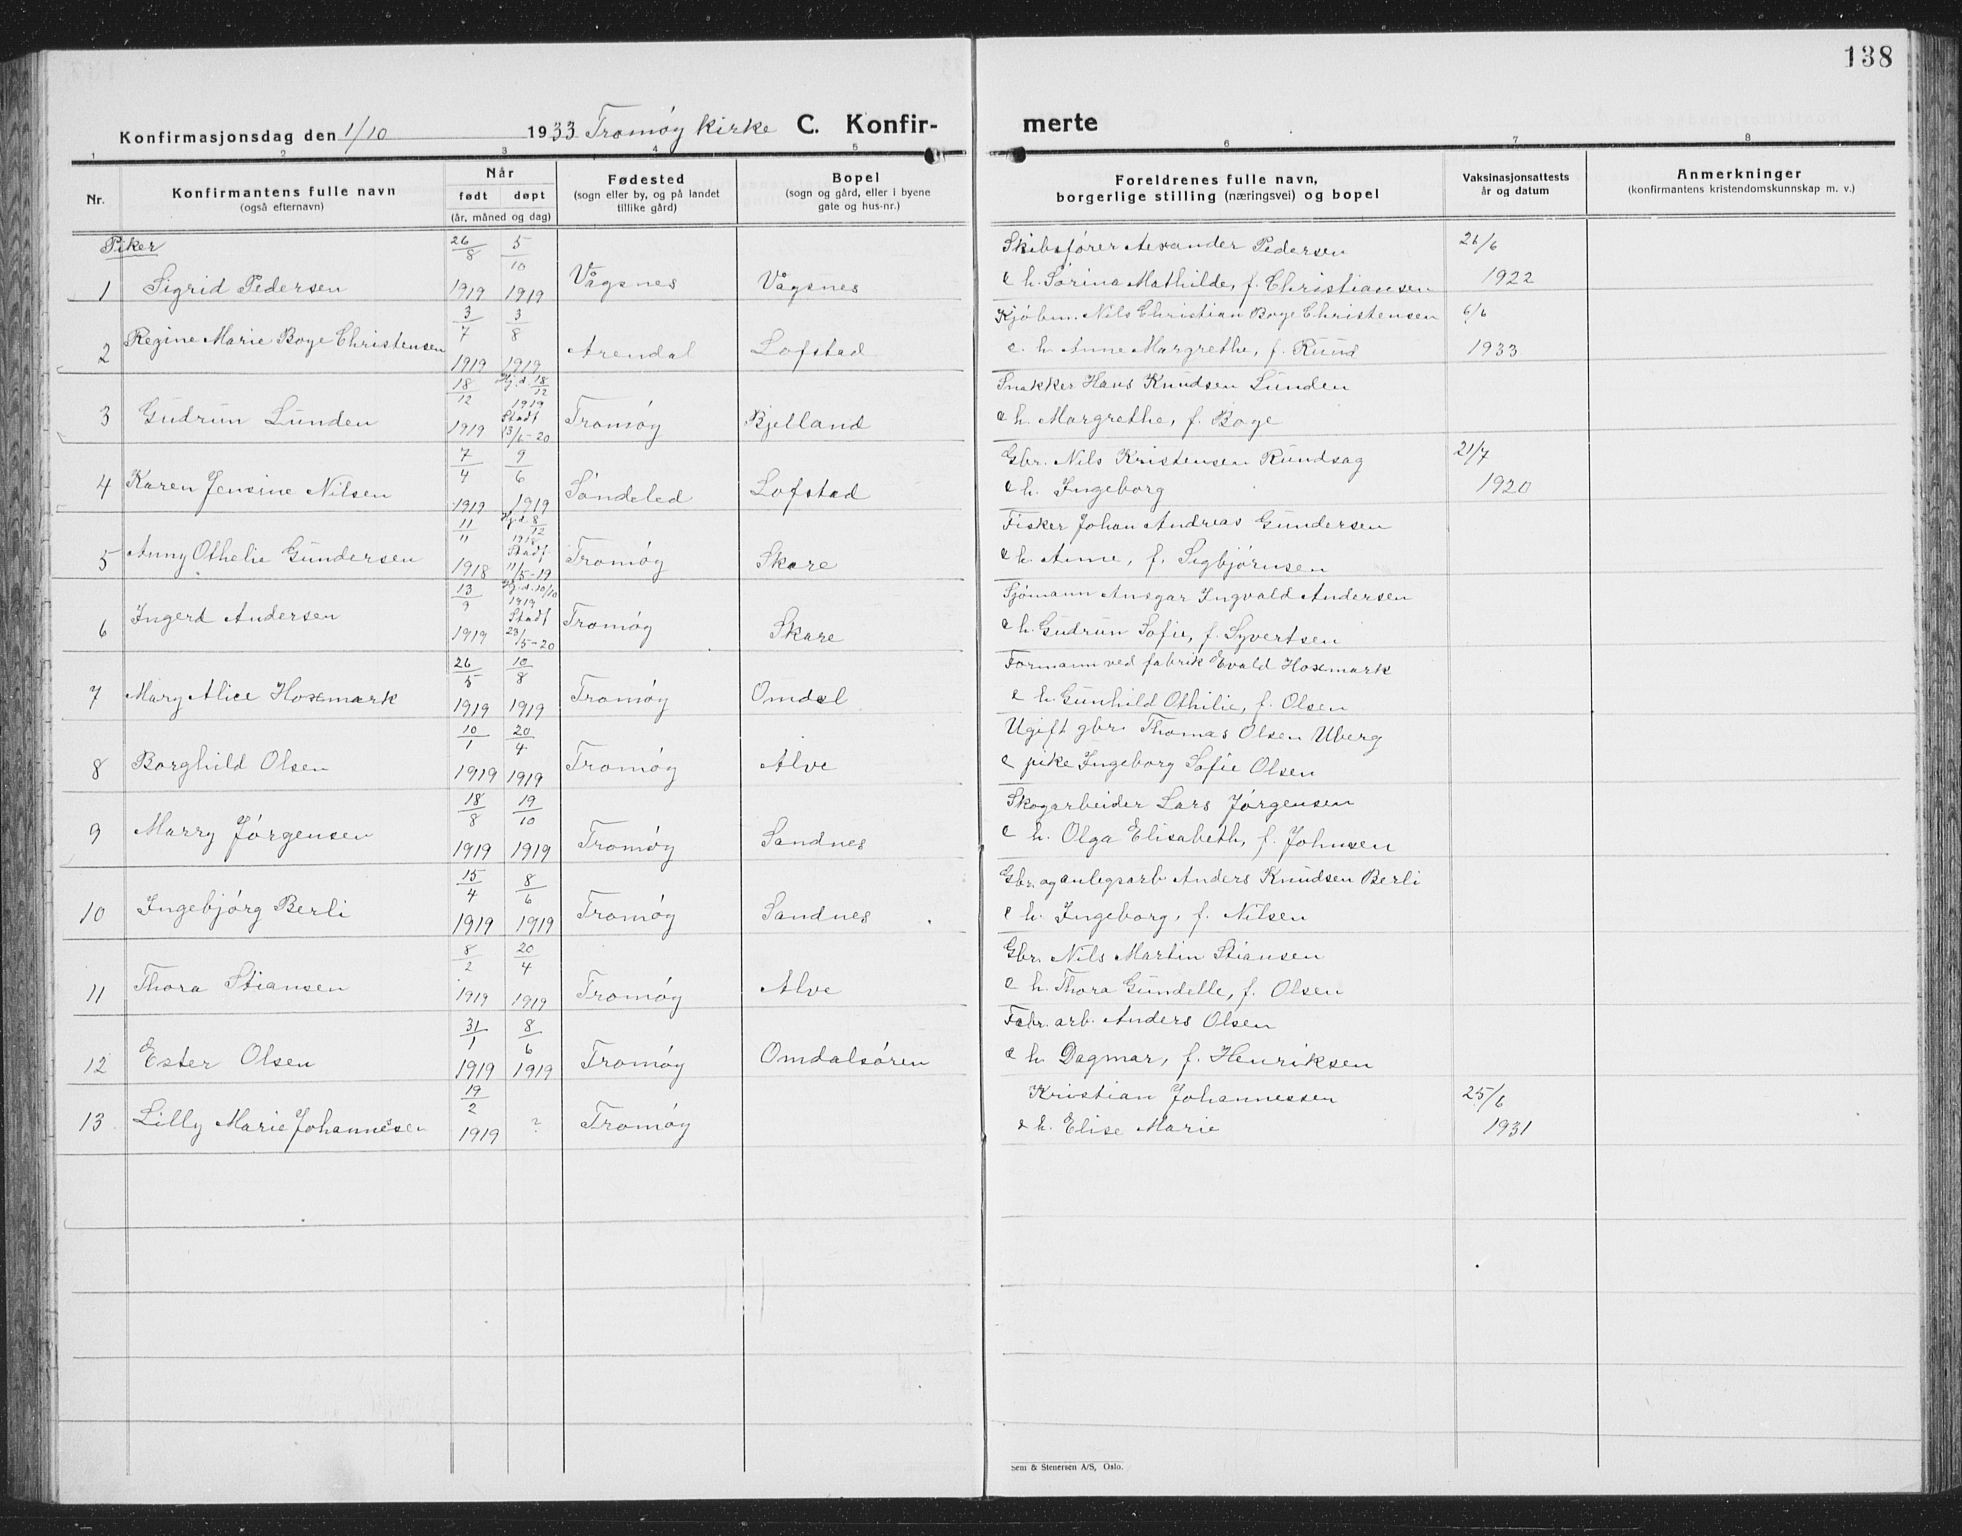 138
Konfirmasjonsdag den 1/10 1933 Tromøy kirke C. Konfir- merte
1 2 3 4 5 6 7 8
Nr.
Konfirmantens fulle navn
(også efternavn)
Når
født døpt
(år, måned og dag)
Fødested
(sogn eller by, og på landet
tillike gård)
Bopel
(sogn og gård, eller i byene
gate og hus-nr.)
Foreldrenes fulle navn,
borgerlige stilling (næringsvei) og bopel
Vaksinasjonsattests
år og datum
Anmerkninger
(konfirmantens kristendomskunnskap m. v.)
Piker 26/8 5/10 Skibsfører Alexander Pedersen 26/6
1 Sigrid Pedersen 1919 1919 Vågsnes Vågsnes e h. Sørina Mathilde, f. Christiansen 1922
3/7 3/8 Kjøbm. Nils Christian Boye Christensen 6/6
2 Regine Marie Boye Christensen 1919 1919 Arendal Lofstad e. h. Anne Margrethe, f. Ruud 1933
18/12 Hj.d. 18/12 1919 Snekker Hans Knudsen Lunden
3 Gudrun Lunden 1919 Stadf 13/6-20 Tromøy Bjelland e h. Margrethe, f. Boye
7/4 9/6 Gbr. Nils Kristensen Rundsag 21/7
4 Karen Jensine Nilsen 1919 1919 Søndeled Lofstad e h. Ingeborg 1920
11/11 Hj.d. 8/12 1918 Fisker Johan Andreas Gundersen
5 Anny Othelie Gundersen 1918 Stadf 11/5-19 Tromøy Skare e h. Anne, f. Sigbjørnsen
13/9 Hj.d. 10/10 1919 Sjømann Ansgar Ingvald Andersen
6 Ingerd Andersen 1919 Stadf 23/5-20 Tromøy Skare e h. Gudrun Sofie, f. Syvertsen
26/5 10/8 Formann ved fabrik Evald Hoxmark
7 Mary Alice Hoxmark 1919 1919 Tromøy Omdal e h. Gunhild Othilie, f. Olsen
10/1 20/4 Ugift gbr. Thomas Olsen Uberg
8 Borghild Olsen 1919 1919 Tromøy Alve e pike Ingeborg Sofie Olsen
18/8 19/10 Skogarbeider Lars Jørgensen
9 Marry Jørgensen 1919 1919 Tromøy Sandnes e h. Olga Elisabeth, f. Johnsen
15/4 8/6 Gbr. og anlegsarb Anders Knudsen Berli
10 Ingebjørg Berli 1919 1919 Tromøy Sandnes e h. Ingeborg, f. Nilsen
8/2 20/4 Gbr. Nils Martin Stiansen
11 Thora Stiansen 1919 1919 Tromøy Alve e h. Thora Gundelle, f. Olsen
31/1 8/6 Fabr. arb. Anders Olsen
12 Ester Olsen 1919 1919 Tromøy Omdalsøren e h. Dagmar, f. Henriksen
19/2 Kristian Johannessen 25/6
13 Lilly Marie Johannessen 1919 ? Tromøy e h. Elise Marie 1931
Sem & Stenersen A/S, Oslo.